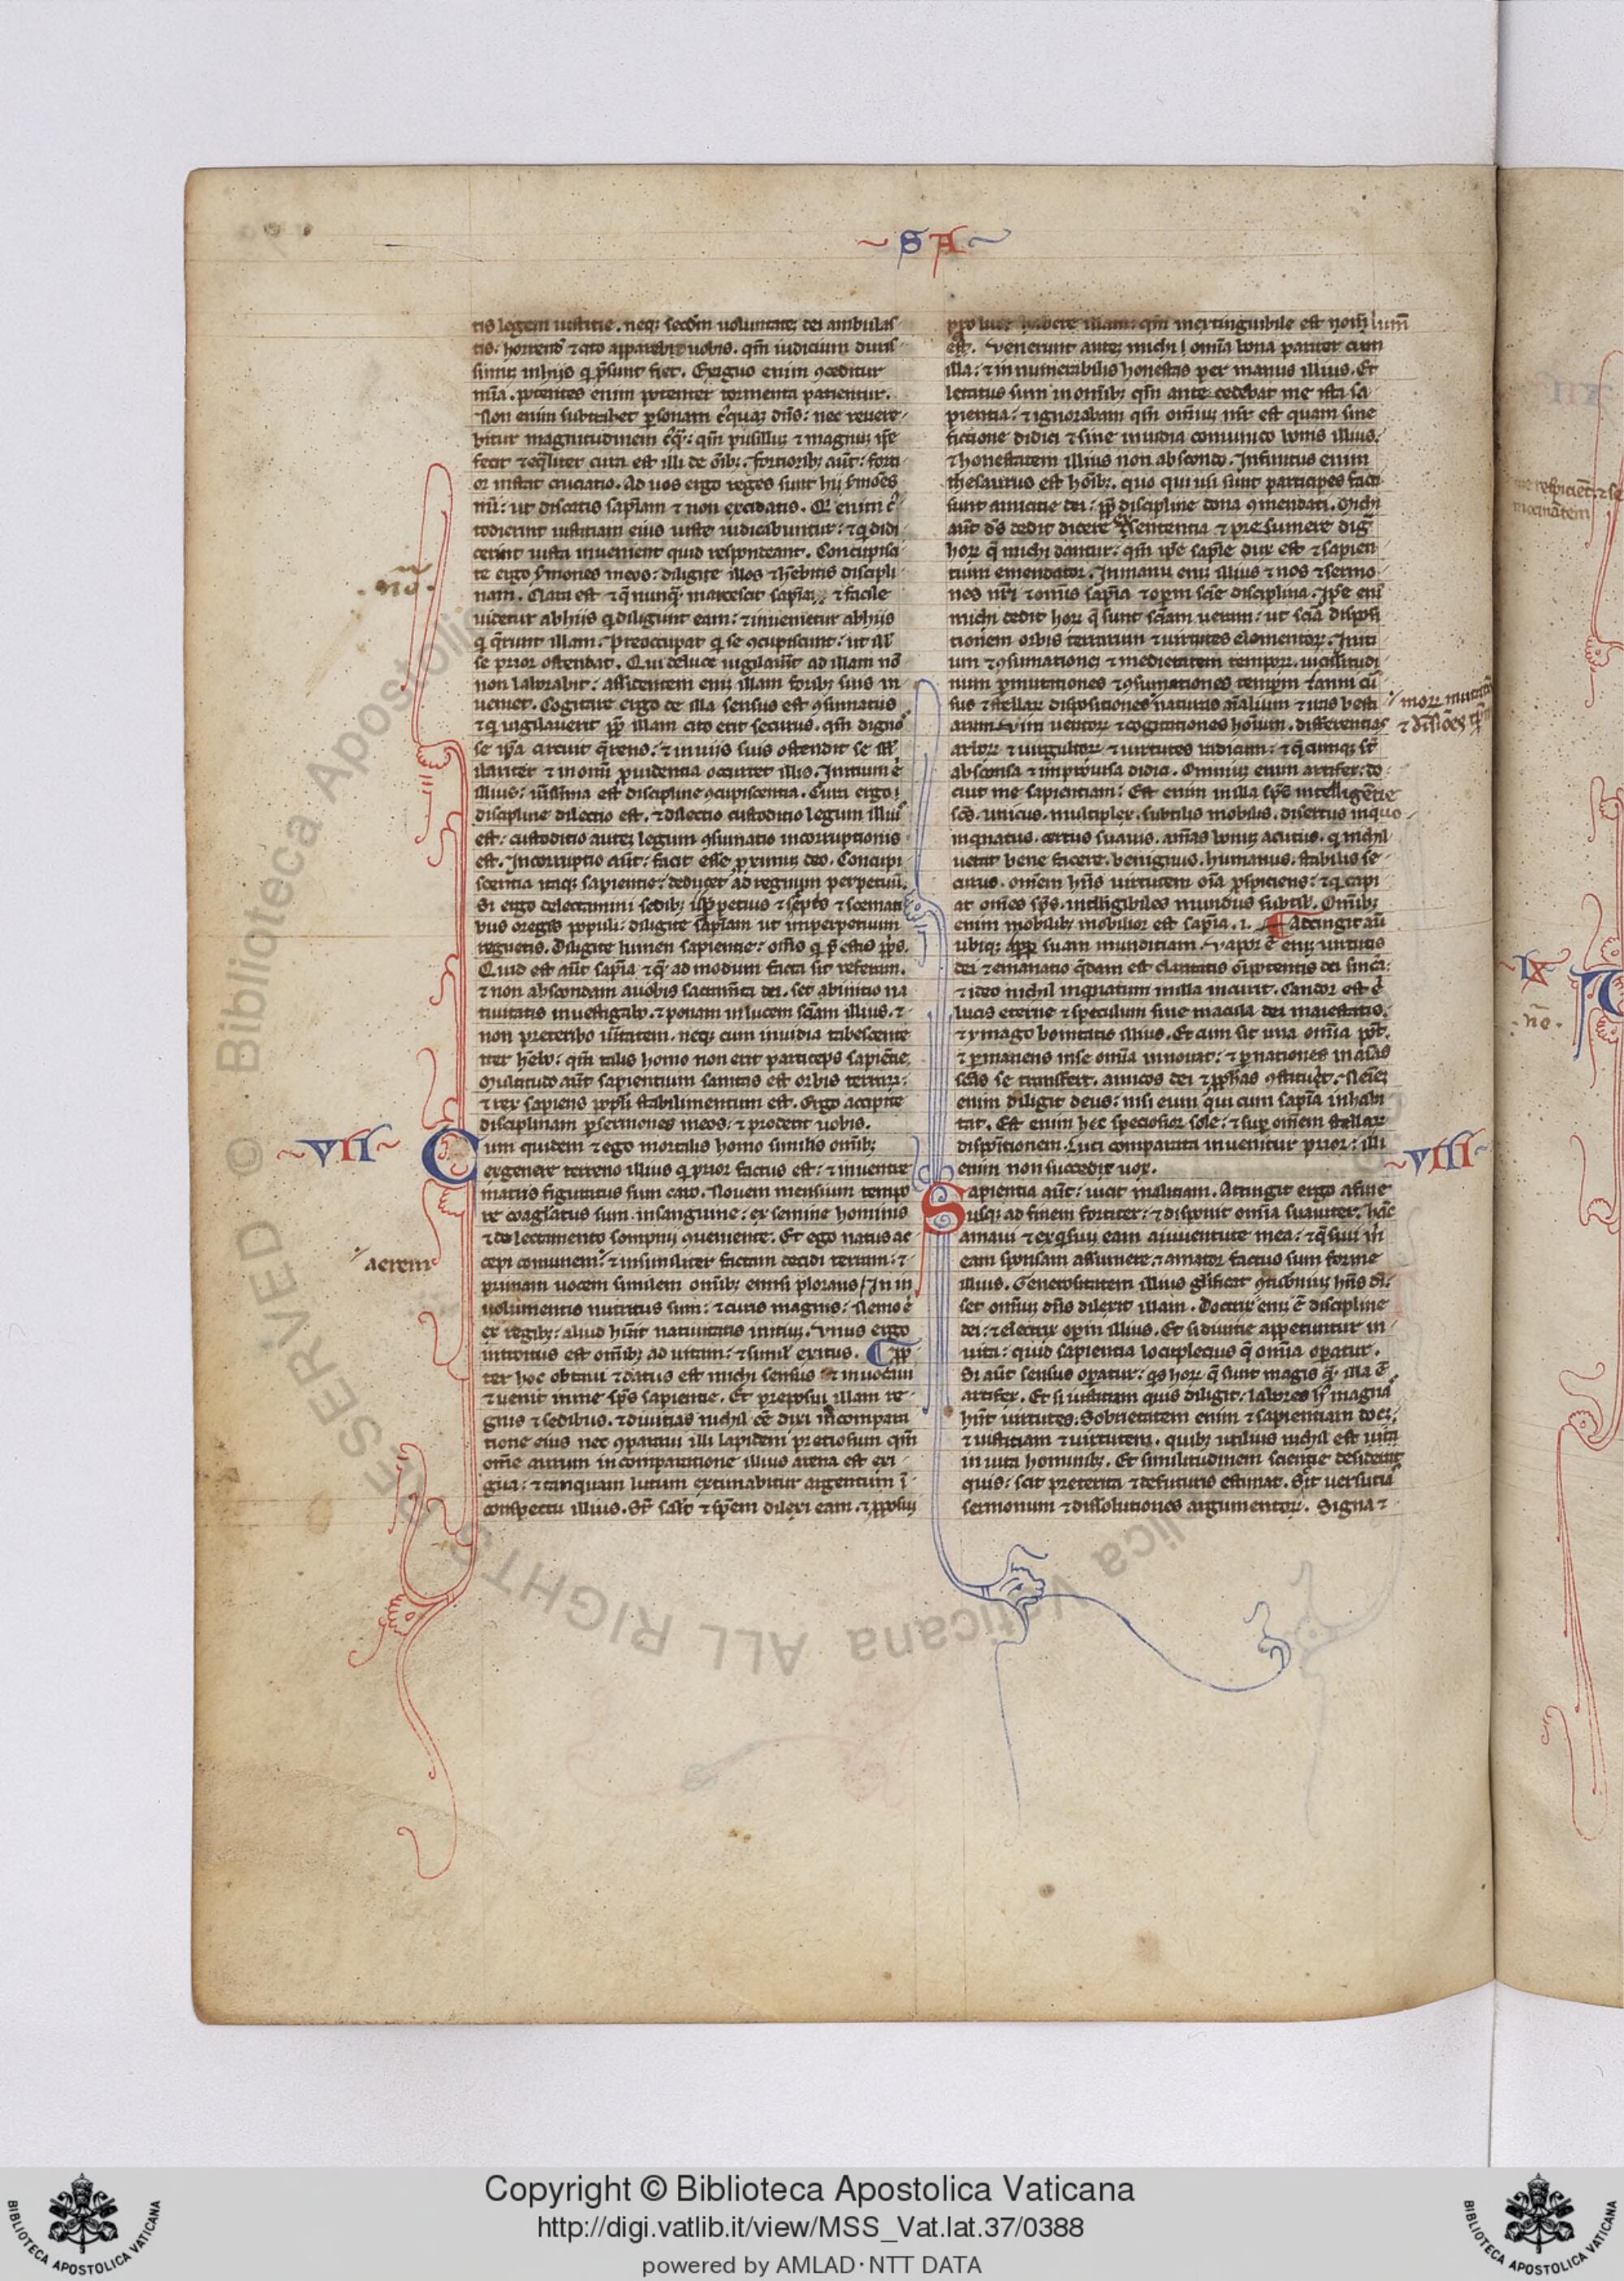 ~ S A ~
tis legem iusticie. neq; secdm uoluntatez dei ambulas
tis. horrende ⁊ cito apparebit uobis. qm̄ iudicium duris
simuz inhijs q̇ p̱sunt fiet. Exiguo enim ꝯceditur
mīa. potentes enim potenter tormenta patientur.
Non enim subtrahet ꝑsonam cuiquaz dn̄s: nec reuere
bitur magnitudinem cuiq̄ꝫ: qm̄ pusilluz ⁊ magnuz ip̄e
fecit ⁊ eq̄liter cura est illi de oīb;. fortiorib; aūt: forti
or instat cruciatio. Ad uos ergo reges sunt hij ẜmōes
mī: ut discatis sapīam ⁊ non excidatis. Q̇ enim c̄
todierint iusticiam eius iuste iudicabuntur: ⁊ q̇ didi
cerint iusta inuenient quid respondeant. Concupisci
te ergo ẜmones meos: diligite illos ⁊ hēbitis discipli
nam. Clara est ⁊ q̄ nunq̄ꝫ marcescit sapīa. ⁊ facile
uidetur abhijs q̇ diligunt eam: ⁊ inuenietur abhijs
q̇ q̄runt illam. Preoccupat q̇ se ꝯcupiscunt: ut ill̄
se prior ostendat. Qui deluce uigilauīt ad illam nō
non laborabit: assidentem eniz illam forib; suis in
ueniet. Cogitare ergo de illa sensus est ꝯsumatus
⁊ q̇ uigilauerit ꝓp̱ illam cito erit securus. qm̄ digno
se ip̄a circuit q̄rens: ⁊ in uijs suis ostendit se ill̄
ilariter ⁊ in om̄i ꝓuidentia occurret illis. Initium ē
illius: uīssima est discipline ꝯcupiscentia. Cura ergo
discipline dilectio est. ⁊ dilectio custoditio legum illiuſ
est: custoditio autez legum ꝯsumatio incorruptionis
est. Incorruptio aūt: facit esse ꝓximuz deo. Concupi
scentia itaq; sapientie: deducet ad regnum perpetuū.
Si ergo delectamini sedib;
bus o reges populi: diligite sapīam ut imperpetuum
regnetis. Diligite lumen sapientie: oms̄ q̇ p̱ estis ppl̄s.
Quid est aūt sapīa ⁊ q̄ꝫ ad modum facta sit referam.
⁊ non abscondam auobis sacramēta dei. set abinitio na
tiuitatis inuestigabo. ⁊ ponam in lucem scīam illius. ⁊
non preteribo uītatem. neq; cum inuidia tabescente
iter hēbo: qm̄ talis homo non erit particeps sapiētie.
Multitudo aūt sapientium sanitas est orbis terrarꝫ:
⁊ rex sapiens pop̄li stabilimentum est. Ergo accipite
disciplinam ꝑ sermones meos: ⁊ proderit uobis.
~VII~
Cum quidem ⁊ ego mortalis homo similis omīb;
ex genere terreno illius q̇ prior factus est: ⁊ in uentre
matris figuratus sum caro. Nouem mensium tempo
re coag̃latus sum. in sanguine: ex semine hominis
⁊ delectamento sompnij ꝯueniente. Et ego natus ac
cepi comunem. ⁊ in similiter factam decidi terram: ⁊
primam uocem similem omīb; emisi plorans. In in
uolumentis nutritus sum: ⁊ curis magnis: Nemo ē
ex regib;: aliud hūit natiuitatis initiuz. Vnus ergo
introitus est omīb; ad uitam: ⁊ simil' exitus. ¶ Pꝓ
ter hoc optaui ⁊ datus est michi sensus ⁊ inuocaui
⁊ uenit in me sp̄s sapientie. Et preposui illam re
gnis ⁊ sedibus. ⁊ diuitias nichil eē dixi in compara
tione eius nec ꝯparaui illi lapidem pretiosum qm̄
om̄e aurum in comparatione illius arena est exi
gua: ⁊ tanquam lutum extimabitur argentum ī
conspectu illius. Sr̄ salt̄o ⁊ sp̄em dilexi eam. ⁊ ꝓposui
nō.
aerem
pro luce habere illam: qm̄ inextinguibile est nom̄ lum̄
est. Venerunt autez michi omīa bona pariter cum
illa: ⁊ in numerabilis honestas per manus illius. Et
letatus sum in omīb; qm̄ ante cedebat me ista sa
pientia: ⁊ ignorabam qm̄ omīuz mr̄ est quam sine
fictione didici ⁊ sine inuidia comunico bonis illius.
⁊ honestatem illius non abscondo. Infinitus enim
thesaurus est hoīb;. quo qui usi sunt participes facti
sunt amicitie dei: ꝓp̱ discipline dona ꝯmendati. Michi
aūt dš dedit dicere ex sententia ⁊ presumere dig̃
horꝫ q̄ michi dantur: qm̄ ip̄e sapīe dux est ⁊ sapien
tum emendator. In manu eniz illius ⁊ nos ⁊ sermo
nes nr̄i ⁊ om̄is sapīa ⁊ operū scīe disciplina. Ip̄e enī
michi dedit horꝫ q̄ sunt scīam ueram: ut sciā disposi
tionem orbis terrarum ⁊ uirtutes elementorꝫ. Initi
um ⁊ ꝯsumationez ⁊ medietatem temporꝫ. uicissitudi
num ꝑmutationes ⁊ ꝯsumationes temporū ⁊ anni cū
sus ⁊ stellarꝫ dispositiones naturas aīalium ⁊ iras besti
arum ⁊ uim uentorꝫ ⁊ cogitationes hoīnum. differentias
arborꝫ ⁊ uirgultorꝫ ⁊ uirtutes radicum: ⁊ q̄cumq; sr̄
absconsa ⁊ improuisa didici. Omniuz enim artifex: do
cuit me sapientiam: Est enim in illa sp̄s intelligētie
scs̄. unicus. multiplex. subtilis mobilis. disertus inquo
inq̇natus. certus suauis. amās bonuz acutus. q̇ nichil
uetat bene facere. benignus. humanus. stabilis se
curus. omēm hn̄s uirtutem oīa ꝓspiciens: ⁊ q̇ capi
at omēs sp̄s. intelligibiles mundus subtil'. Omīb;
enim mobilib; mobilior est sapīa. ¶ Attingit aūt
ubiq; ꝓp̱ suam munditiam. Vapor ē eniz uirtutis
dei ⁊ emanatio q̄dam est claritatis oīpotentis dei sincī:
⁊ ideo nichil inq̇natum in illa incurit. Candor est ē
lucis eterne ⁊ speculum sine macula dei maiestatis:
⁊ ymago bonitatis illius. Et cum sit una omīa pōt.
⁊ ꝑmanens in se omīa innouat: ⁊ ꝑ nationes in aīas
scās se transfert. amicos dei ⁊ ꝓphas ꝯstituit. Neīez
enim diligit deus: nisi eum qui cum sapīa inhabi
tat. Est enim hec speciosior sole: ⁊ suꝑ omēm stellarꝫ
dispōitionem. Luci comparata inuenitur prior: illi
enim non succedit nox.
~VIII~
Sapientia aūt: uicit malitiam. Attingit ergo afine
usq; ad finem fortiter: ⁊ disponit omīa suauiter. hāc
amaui ⁊ exq̇siui eam aiuuentute mea: ⁊ q̄siui m̄
eam sponsam assumere. ⁊ amator factus sum forme
illius. Generositatem illius gl̄ificat ꝯtuberniuz hn̄s di:
set omīuz dn̄s dilexit illam. Doctrix eniz ē discipline
dei: ⁊ electrix operū illius. Et si diuitie appetuntur in
uita: quid sapientia locupletius q̄ omīa operatur.
Si aūt sensus operatur: q̇s horꝫ q̄ sunt magis q̄ꝫ illa ē
artifex. Et si iustitiam quis diligit: labores h' magnā
hn̄t uirtutes: Sobrietatem enim ⁊ sapientiam docz.
⁊ iustitiam ⁊ uirtutem. quib; utilius nichil est uita
in uita hominib;. Et si multitudinem scientie desiderat
quis: scit preterita ⁊ defuturis estimat. Scit uersutia
sermonum ⁊ dissolutiones argumentorꝫ. Signa ⁊
~IX
nō.
Copyright © Biblioteca Apostolica Vaticana
http://digi.vatlib.it/view/MSS_Vat.lat.37/0388
powered by AMLAD·NTT DATA
BIBLIOTECA APOSTOLICA VATICANA
BIBLIOTECA APOSTOLICA VATICANA
© Biblioteca Apostolica Vaticana ALL RIGHTS RESERVED